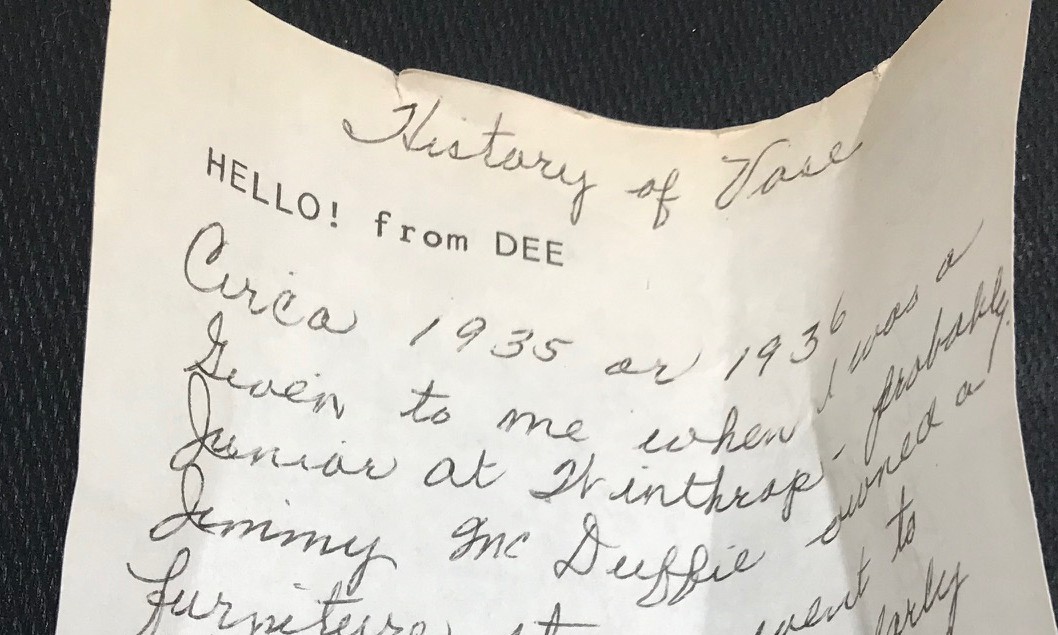 History of Vase
HELLO! from DEE
Circa 1935 or 1936
Given to me when I was a
Junior at Winthrop - probably
Jimmy McDuffie owned a
furniture went to